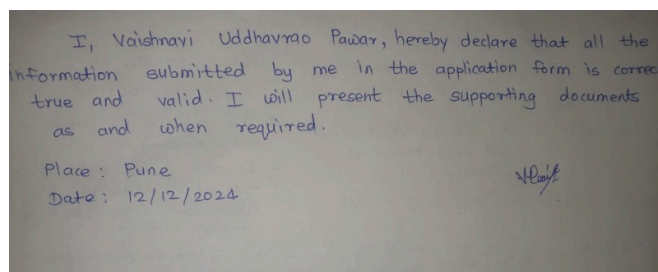 I, Vaishnavi Uddhavrao Pawar, hereby declare that all the
information submitted by me in the application form is correc
true and valid. I will present the supporting documents
as and when required.
Place : Pune
Date : 12/12/2024